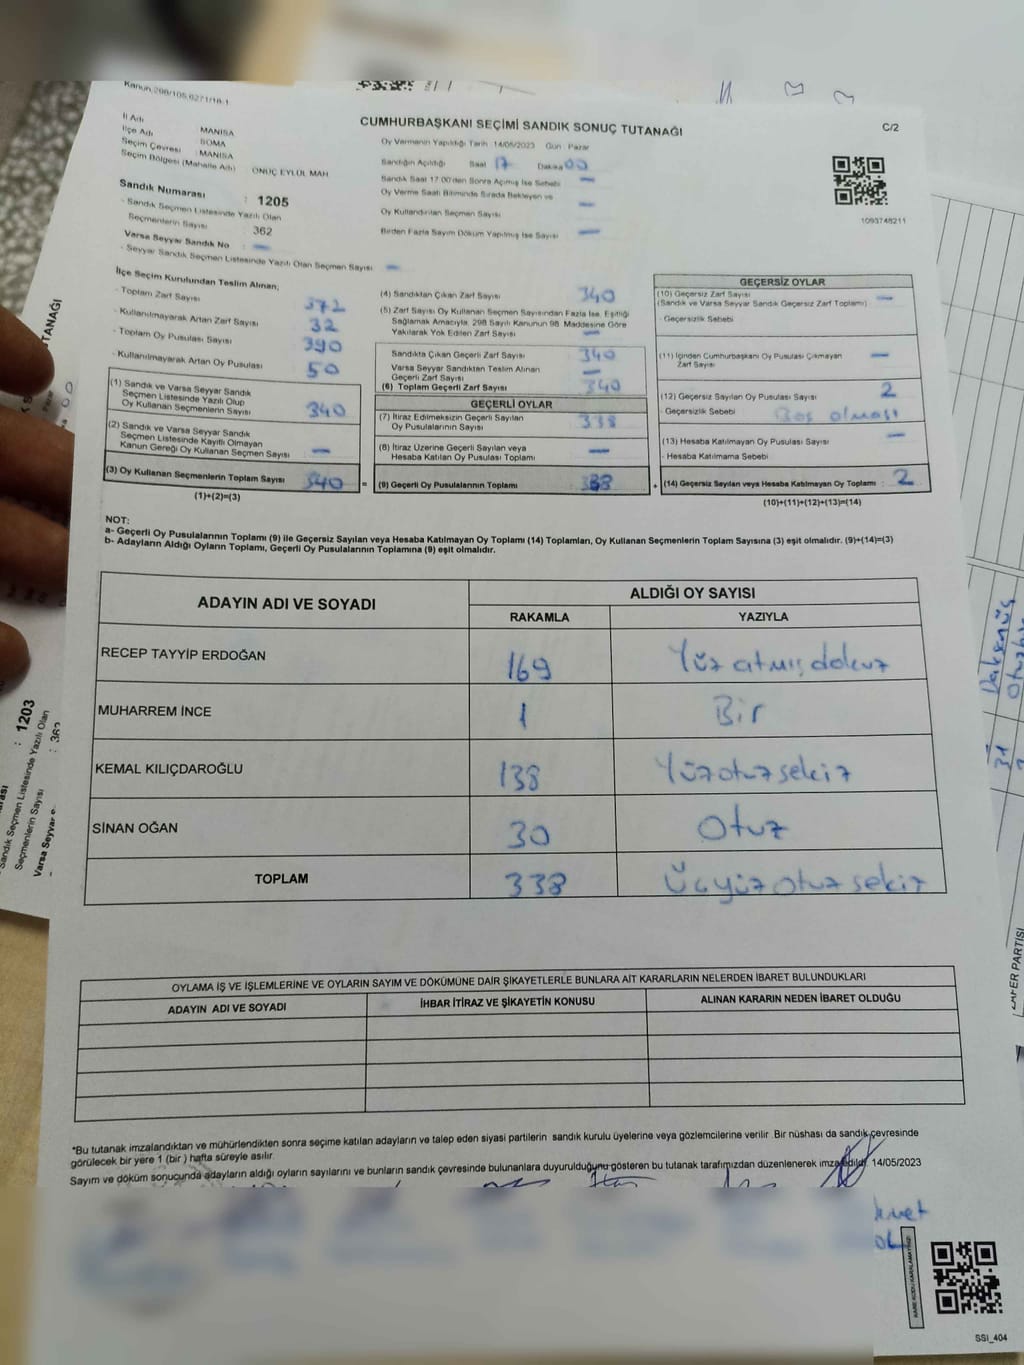 Kanun 298/105,6271/18-1
CUMHURBAŞKANI SEÇİMİ SANDIK SONUÇ TUTANAĞI
C/2
İl Adı MANİSA
İlçe Adı SOMA
Seçim Çevresi : MANİSA
Seçim Bölgesi (Mahalle Adı) ONUÇ EYLÜL MAH
Sandık Numarası : 1205
- Sandık Seçmen Listesinde Yazılı Olan
Seçmenlerin Sayısı 362
Varsa Seyyar Sandık No : —
- Seyyar Sandık Seçmen Listesinde Yazılı Olan Seçmen Sayısı : —
Oy Vermenin Yapıldığı Tarih 14/05/2023 Gün Pazar
Sandığın Açıldığı Saat 17 Dakika 00
Sandık Saat 17.00'den Sonra Açılmış İse Sebebi —
Oy Verme Saati Bitiminde Sırada Bekleyen ve
Oy Kullandırılan Seçmen Sayısı —
Birden Fazla Sayım Döküm Yapılmış İse Sayısı —
1093748211
İlçe Seçim Kurulundan Teslim Alınan;
- Toplam Zarf Sayısı 372
- Kullanılmayarak Artan Zarf Sayısı 32
- Toplam Oy Pusulası Sayısı 390
- Kullanılmayarak Artan Oy Pusulası 50
(1) Sandık ve Varsa Seyyar Sandık
Seçmen Listesinde Yazılı Olup
Oy Kullanan Seçmenlerin Sayısı 340
(2) Sandık ve Varsa Seyyar Sandık
Seçmen Listesinde Kayıtlı Olmayan
Kanun Gereği Oy Kullanan Seçmen Sayısı —
(3) Oy Kullanan Seçmenlerin Toplam Sayısı 340
(1)+(2)=(3)
(4) Sandıktan Çıkan Zarf Sayısı 340
(5) Zarf Sayısı Oy Kullanan Seçmen Sayısından Fazla İse, Eşitliği
Sağlamak Amacıyla, 298 Sayılı Kanunun 98. Maddesine Göre
Yakılarak Yok Edilen Zarf Sayısı —
Sandıkta Çıkan Geçerli Zarf Sayısı 340
Varsa Seyyar Sandıktan Teslim Alınan
Geçerli Zarf Sayısı —
(6) Toplam Geçerli Zarf Sayısı 340
GEÇERLİ OYLAR
(7) İtiraz Edilmeksizin Geçerli Sayılan
Oy Pusulalarının Sayısı 338
(8) İtiraz Üzerine Geçerli Sayılan veya
Hesaba Katılan Oy Pusulası Toplamı —
= (9) Geçerli Oy Pusulalarının Toplamı : 338
GEÇERSİZ OYLAR
(10) Geçersiz Zarf Sayısı —
(Sandık ve Varsa Seyyar Sandık Geçersiz Zarf Toplamı)
- Geçersizlik Sebebi
(11) İçinden Cumhurbaşkanı Oy Pusulası Çıkmayan
Zarf Sayısı —
(12) Geçersiz Sayılan Oy Pusulası Sayısı 2
- Geçersizlik Sebebi Boş olması
(13) Hesaba Katılmayan Oy Pusulası Sayısı —
- Hesaba Katılmama Sebebi
+ (14) Geçersiz Sayılan veya Hesaba Katılmayan Oy Toplamı : 2
(10)+(11)+(12)+(13)=(14)
NOT:
a- Geçerli Oy Pusulalarının Toplamı (9) ile Geçersiz Sayılan veya Hesaba Katılmayan Oy Toplamı (14) Toplamları, Oy Kullanan Seçmenlerin Toplam Sayısına (3) eşit olmalıdır. (9)+(14)=(3)
b- Adayların Aldığı Oyların Toplamı, Geçerli Oy Pusulalarının Toplamına (9) eşit olmalıdır.
ADAYIN ADI VE SOYADI ALDIĞI OY SAYISI
RAKAMLA YAZIYLA
RECEP TAYYİP ERDOĞAN 169 Yüz atmış dokuz
MUHARREM İNCE 1 Bir
KEMAL KILIÇDAROĞLU 138 Yüzotuzsekiz
SİNAN OĞAN 30 Otuz
TOPLAM 338 Üçyüz otuz sekiz
OYLAMA İŞ VE İŞLEMLERİNE VE OYLARIN SAYIM VE DÖKÜMÜNE DAİR ŞİKAYETLERLE BUNLARA AİT KARARLARIN NELERDEN İBARET BULUNDUKLARI
ADAYIN ADI VE SOYADI İHBAR İTİRAZ VE ŞİKAYETİN KONUSU ALINAN KARARIN NEDEN İBARET OLDUĞU
*Bu tutanak imzalandıktan ve mühürlendikten sonra seçime katılan adayların ve talep eden siyasi partilerin sandık kurulu üyelerine veya gözlemcilerine verilir. Bir nüshası da sandık çevresinde
görülecek bir yere 1 (bir) hafta süreyle asılır.
Sayım ve döküm sonucunda adayların aldığı oyların sayılarını ve bunların sandık çevresinde bulunanlara duyurulduğunu gösteren bu tutanak tarafımızdan düzenlenerek imza edildi. 14/05/2023
SSI_404
TANAĞI
: 1203
Sandık Seçmen Listesinde Yazılı Olan
Seçmenlerin Sayısı : 362
Varsa Seyyar
31